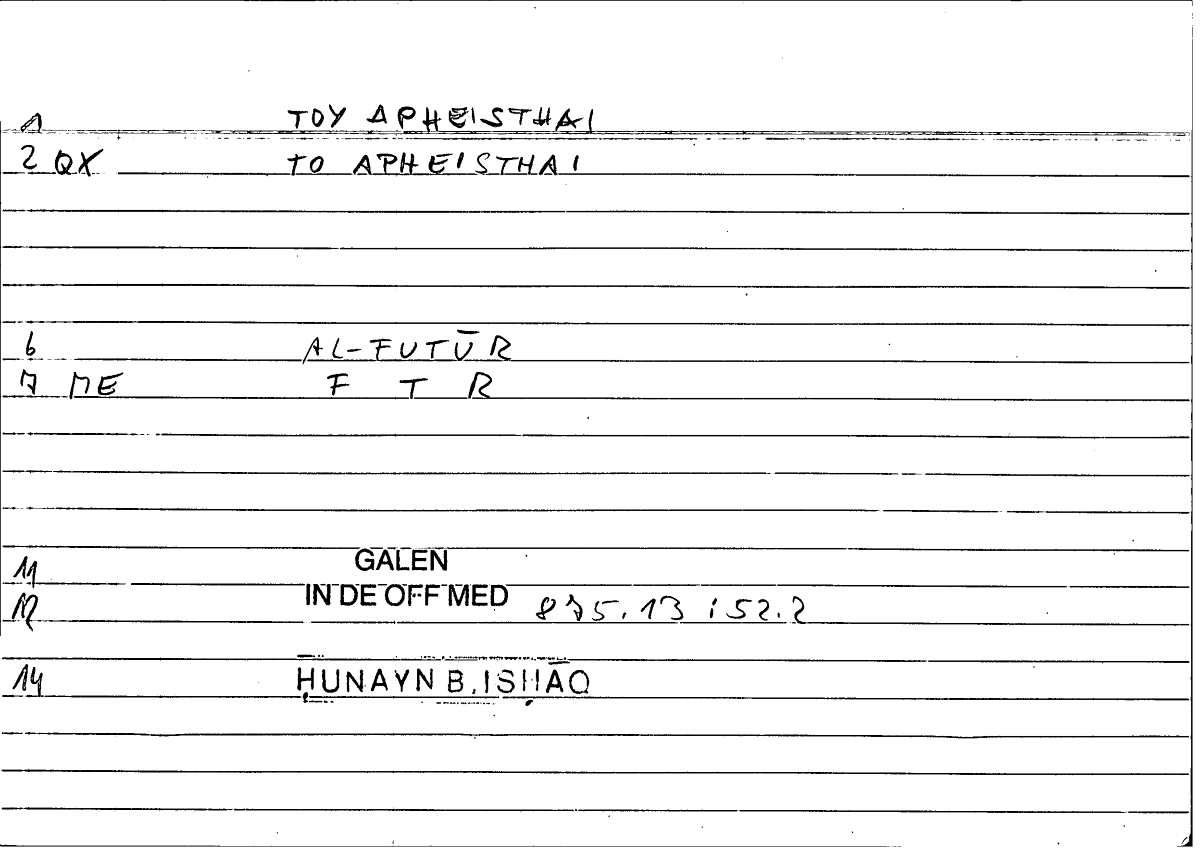 1 TOY APHEISTHAI
2 QX TO APHEISTHAI
6 AL-FUTŪR
7 ME F T R
11 GALEN
12 IN DE OFF MED 875.13 ; 52.2
14 ḤUNAYN B. ISḤĀQ